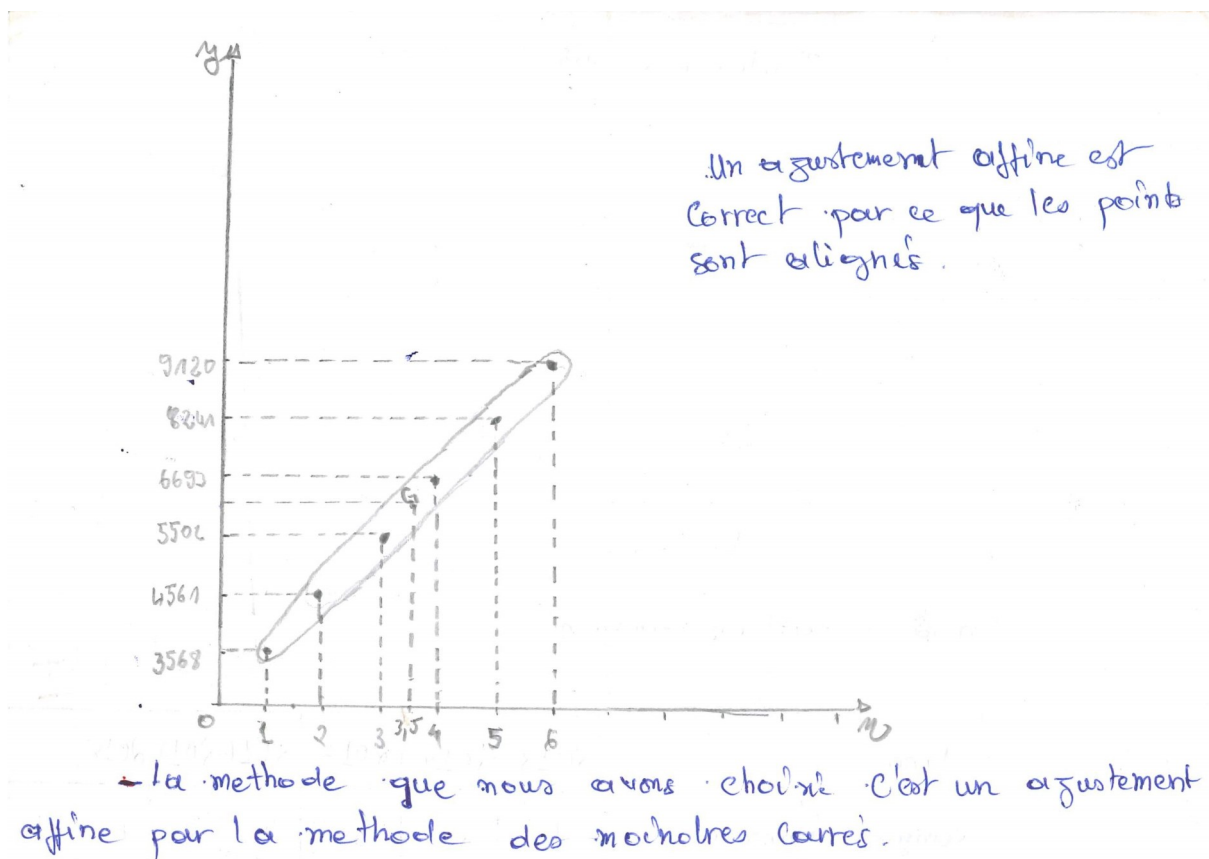 y
Un agustement affine est
Correct par ce que les points
sont alignés.
9120
8241
6693
G
5502
4561
3568
0 1 2 3 3,5 4 5 6
- la methode que nous avons choisie c'est un agustement
affine par la methode des moindres carrés.